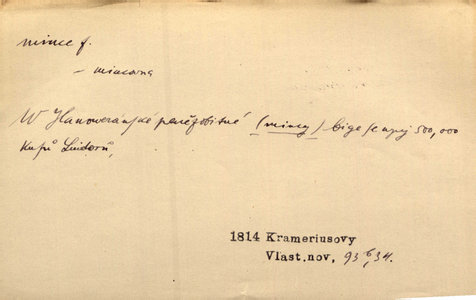 mince f.
– mincovna
W Hanoweranské peněžobitně (mincy) bige se nyní 500,000
kusů Luidorů,
1814 Krameriusovy
Vlast.nov, 93 b, 34.